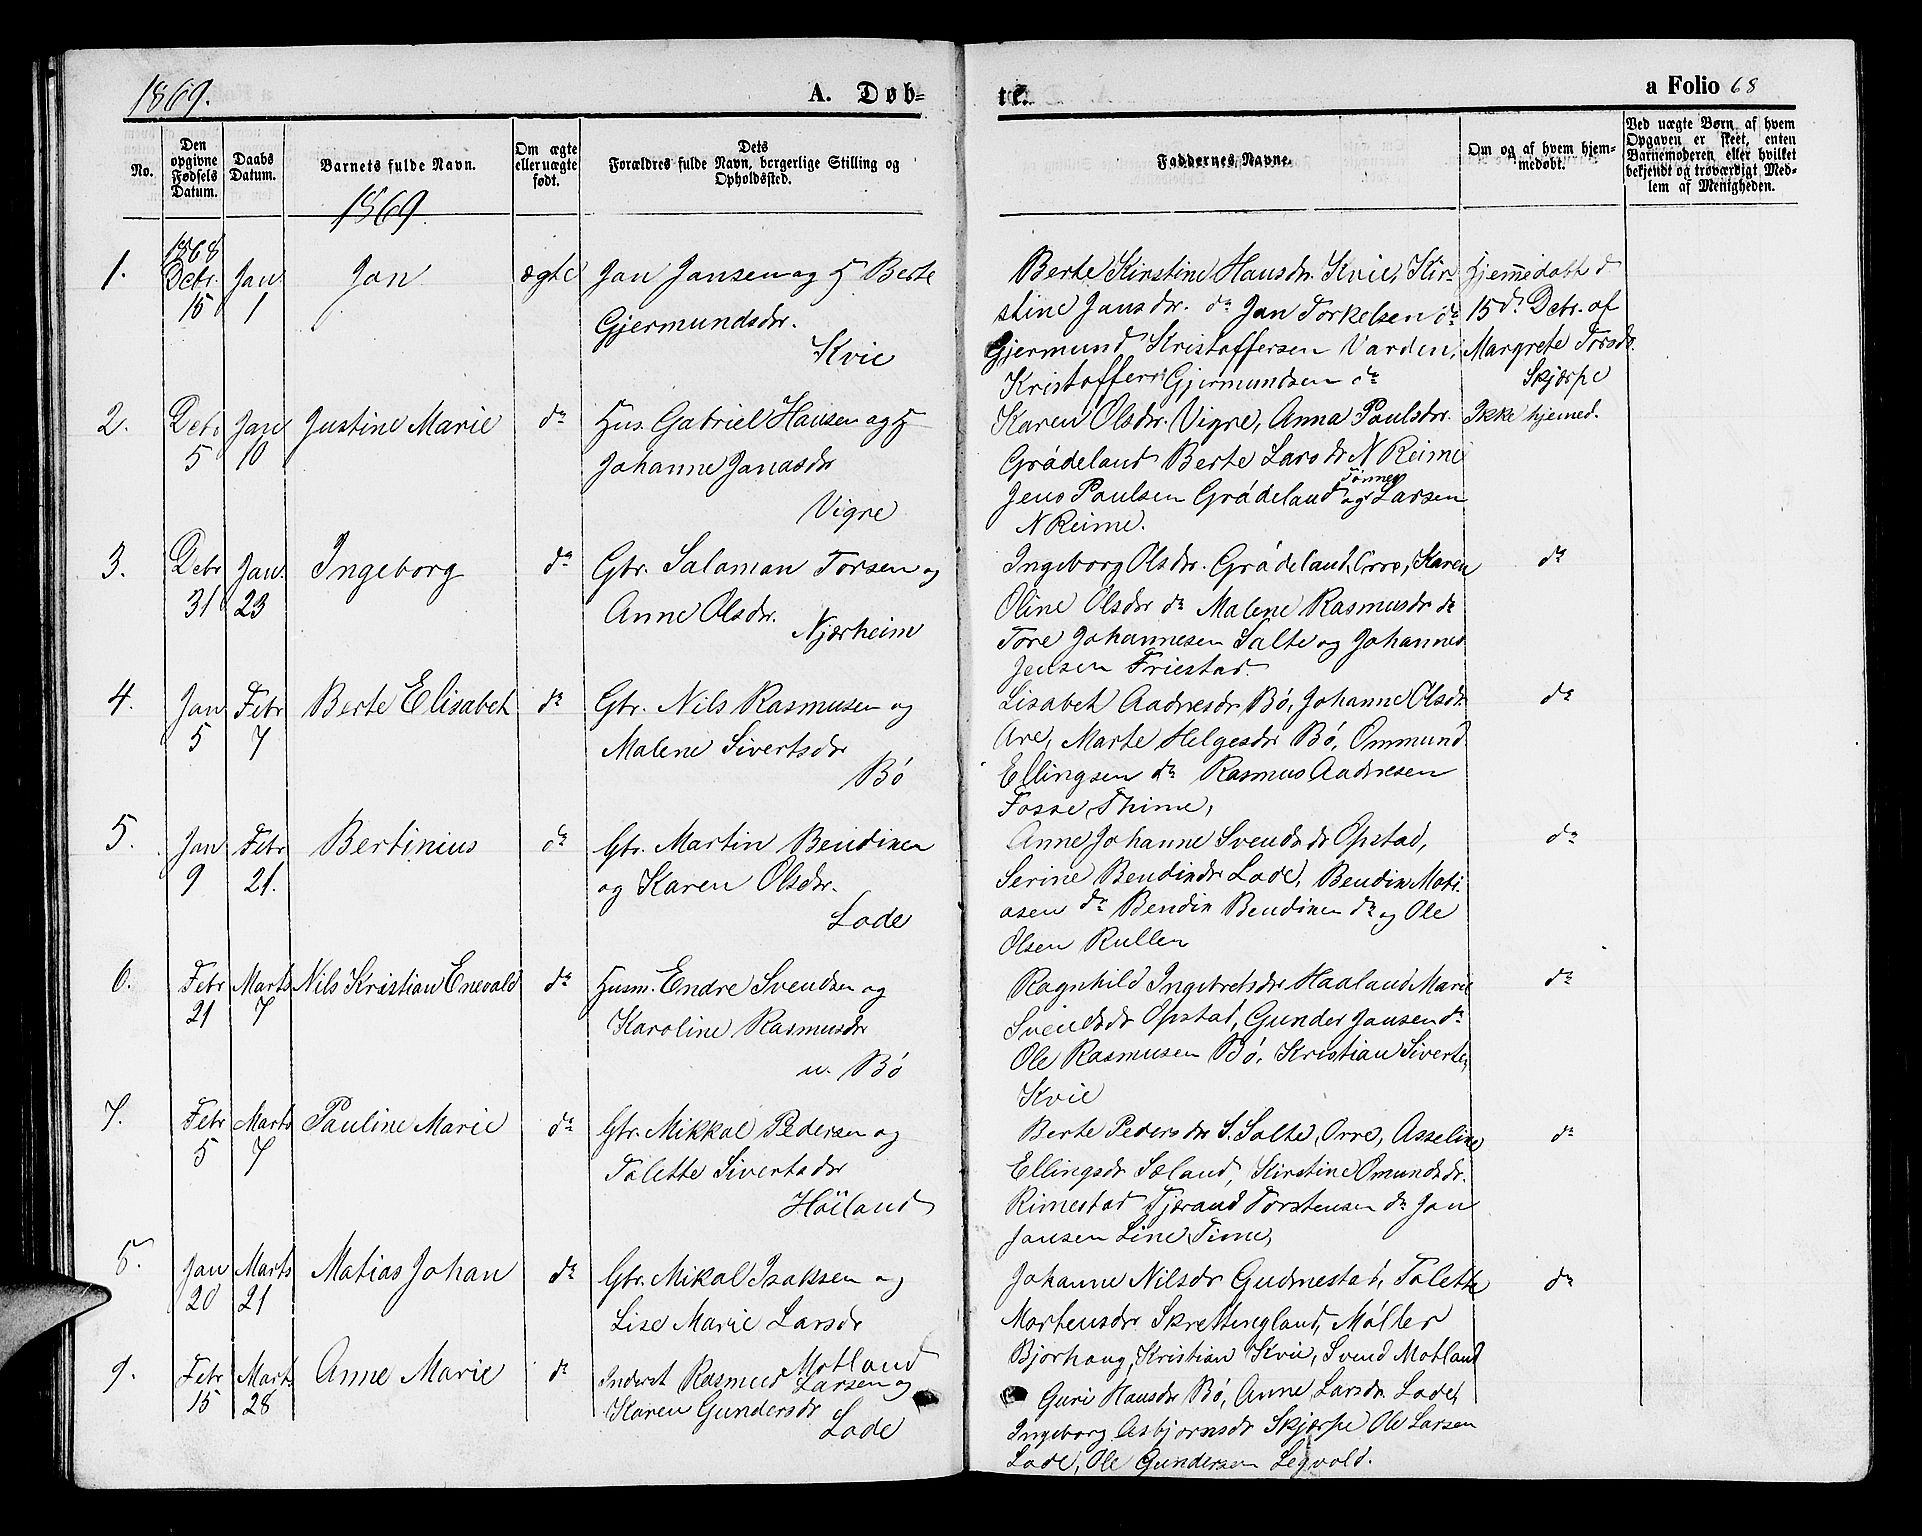 1869.
A. Døb-
te.
a Folio 68
No.
Den opgivne Fødsels Datum.
Daabs Datum.
Barnets fulde Navn.
Om ægte eller uægte født.
Dets Forældres fulde Navn, borgerlige Stilling og Opholdssted.
Faddernes Navne.
Om og af hvem hjemmedøbt.
Ved uægte Børn, af hvem Opgaven er skeet, enten Barnemoderen eller hvilket bekjendt og troværdigt Medlem af Menigheden.
1869.
1. 1868 Debr. 15 Jan 1 Jon ægte Jon Jonsen og H Berte
Gjermundsdr.
Kvie
Berte Kirstine Hansdr. Kvie, Kir-
stine Jonsdr. do Jon Torkelsen do
Gjermund Kristoffersen Varden,
Kristoffer Gjermundsen do
Hjemmedøbt d
15d. Debr. af
Margrete Torsdr.
Skjærpe
2. Debr 5 Jan 10 Justine Marie do Hus. Gabriel Hansen og H
Johanne Jonasdr
Vigre
Karen Olsdr. Vigre, Anna Paulsdr.
Grødeland Berte Larsdr N Reime
Jens Paulsen Grødeland og Tønnes Larsen
N Reime.
Ikke hjemed.
3. Debr 31 Jan. 23 Ingeborg do Gbr. Salamon Torsen og
Anne Olsdr.
Njærheim
Ingeborg Olsdr. Grødeland, Orre, Karen
Oline Olsdr do Malene Rasmusdr do
Tore Johannesen Salte og Johannes
Jensen Friestad.
do
4. Jan 5 Febr 7 Berte Elisabet do Gbr. Nils Rasmusen og
Malene Sivertsdr
Bø
Lisabet Aadnesdr Bø, Johanne Olsdr
Are, Marte Helgesdr Bø, Ommund
Ellingsen do Rasmus Aadnesen
Fosse Thime,
do
5. Jan 9 Febr 21. Bertinius do Gbr. Martin Bendixen
og Karen Olsdr.
Lode
Anne Johanne Svendsdr Opstad,
Serine Bendixdr Lode, Bendix Mati-
asen do Bendix Bendixen do og Ole
Olsen Rullen
do
6. Febr 21 Marts 7 Nils Kristian Enevald do Husm. Endre Svendsen og
Karoline Rasmusdr
u. Bø
Ragnhild Ingebretsdr Haaland Marie
Svendsdr Opstad, Gunder Jansen do
Ole Rasmusen Bø, Kristian Sivertsen
Kvie
do
7. Febr 5 Marts 7 Pauline Marie do Gbr. Mikkal Pedersen og
Talette Sivertsdr
Høiland
Berte Pedersdr S. Salte, Orre, Asseline
Ellingsdr Sæland, Kirstine Omundsdr.
Rimestad Tjærand Torstensen do Jon
Jonsen Line, Time,
do
8. Jan 20 Marts 21 Matias Johan do Gbr. Mikal Isaksen og
Lise Marie Larsdr
Motland
Johanne Nilsdr Gudmestad, Talette
Mortensdr Skrettingland, Møller
Bjorhaug, Kristian Kvie, Svend Motland
do
9. Febr 15 Marts 28 Anne Marie do Inderst Rasmus Larsen og
Karen Gundersdr
Lode
Guri Hansdr Bø, Anne Larsdr Lode,
Ingeborg Asbjørnsdr Skjærpe Ole Larsen
Lode, Ole Gundersen Legvold.